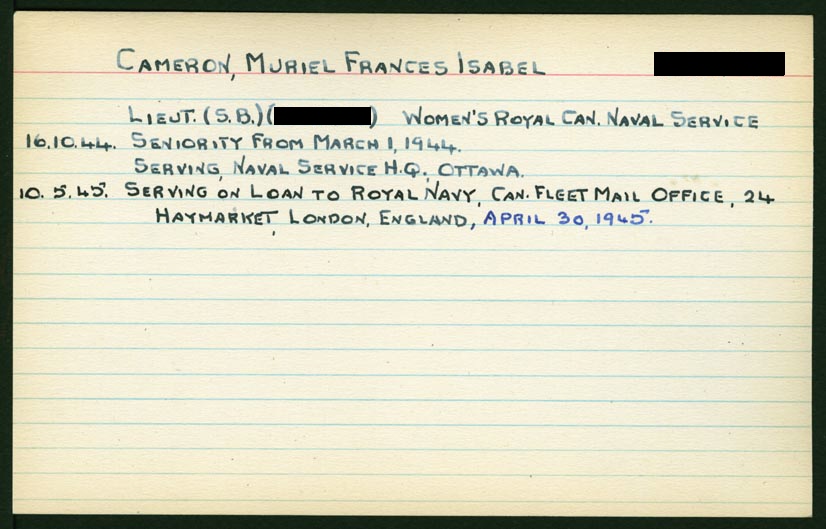 CAMERON, MURIEL FRANCES ISABEL
LIEUT. (S.B.) ( ) WOMEN'S ROYAL CAN. NAVAL SERVICE
16.10.44. SENIORITY FROM MARCH 1, 1944.
SERVING, NAVAL SERVICE H.Q., OTTAWA.
10. 5.45. SERVING ON LOAN TO ROYAL NAVY, CAN. FLEET MAIL OFFICE, 24
HAYMARKET, LONDON, ENGLAND, APRIL 30, 1945.